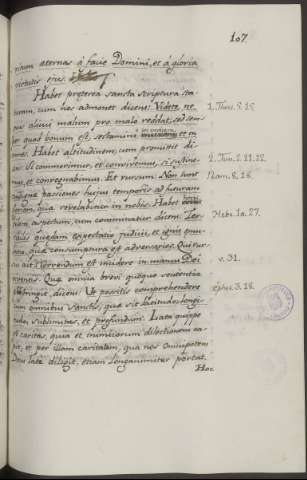 107
niam aeternas à facie Domini, et à gloria
virtutis ejus.
Habet praeterea sancta scriptura sta-
turam, cum hos admonet dicens: Videte, ne
quis alicui malum pro malo reddat, sed sem-
per quod bonum est, sectamini in invicem et in
omnes. Habet altitudinem, cum promittit di-
cens: Si commorimur, et convivemus; si sustine-
mus, et conregnabimus. Et rursum: Non sunt
condignae passiones hujus temporis ad futuram
gloriam, quae revelabitur in nobis. Habet
aspectum, cum comminatur dicens: Ter-
ribilis quaedam expectatio judicii, et ignis aemu-
latio, quae consumptura est adversarios. Qui rur-
sus ait: Horrendum est incidere in manus Dei
viventis. Quae omnia brevi quoque sententia
dicens: Ut possitis comprehendere
cum omnibus Sanctis, quae sit latitudo, longi-
tudo, sublimitas, et profundum. Lata quippe
est caritas, quia et inimicorum dilectionem ca-
pit, et per illam caritatem, qua nos omnipotens
Deus late diligit, etiam longanimiter portat.
Hoc
1. Thess. 5. 15.
2. Tim. 2. 11. 12.
Rom. 8. 18.
Hebr. 10. 27.
v. 31.
Ephes. 3. 18.